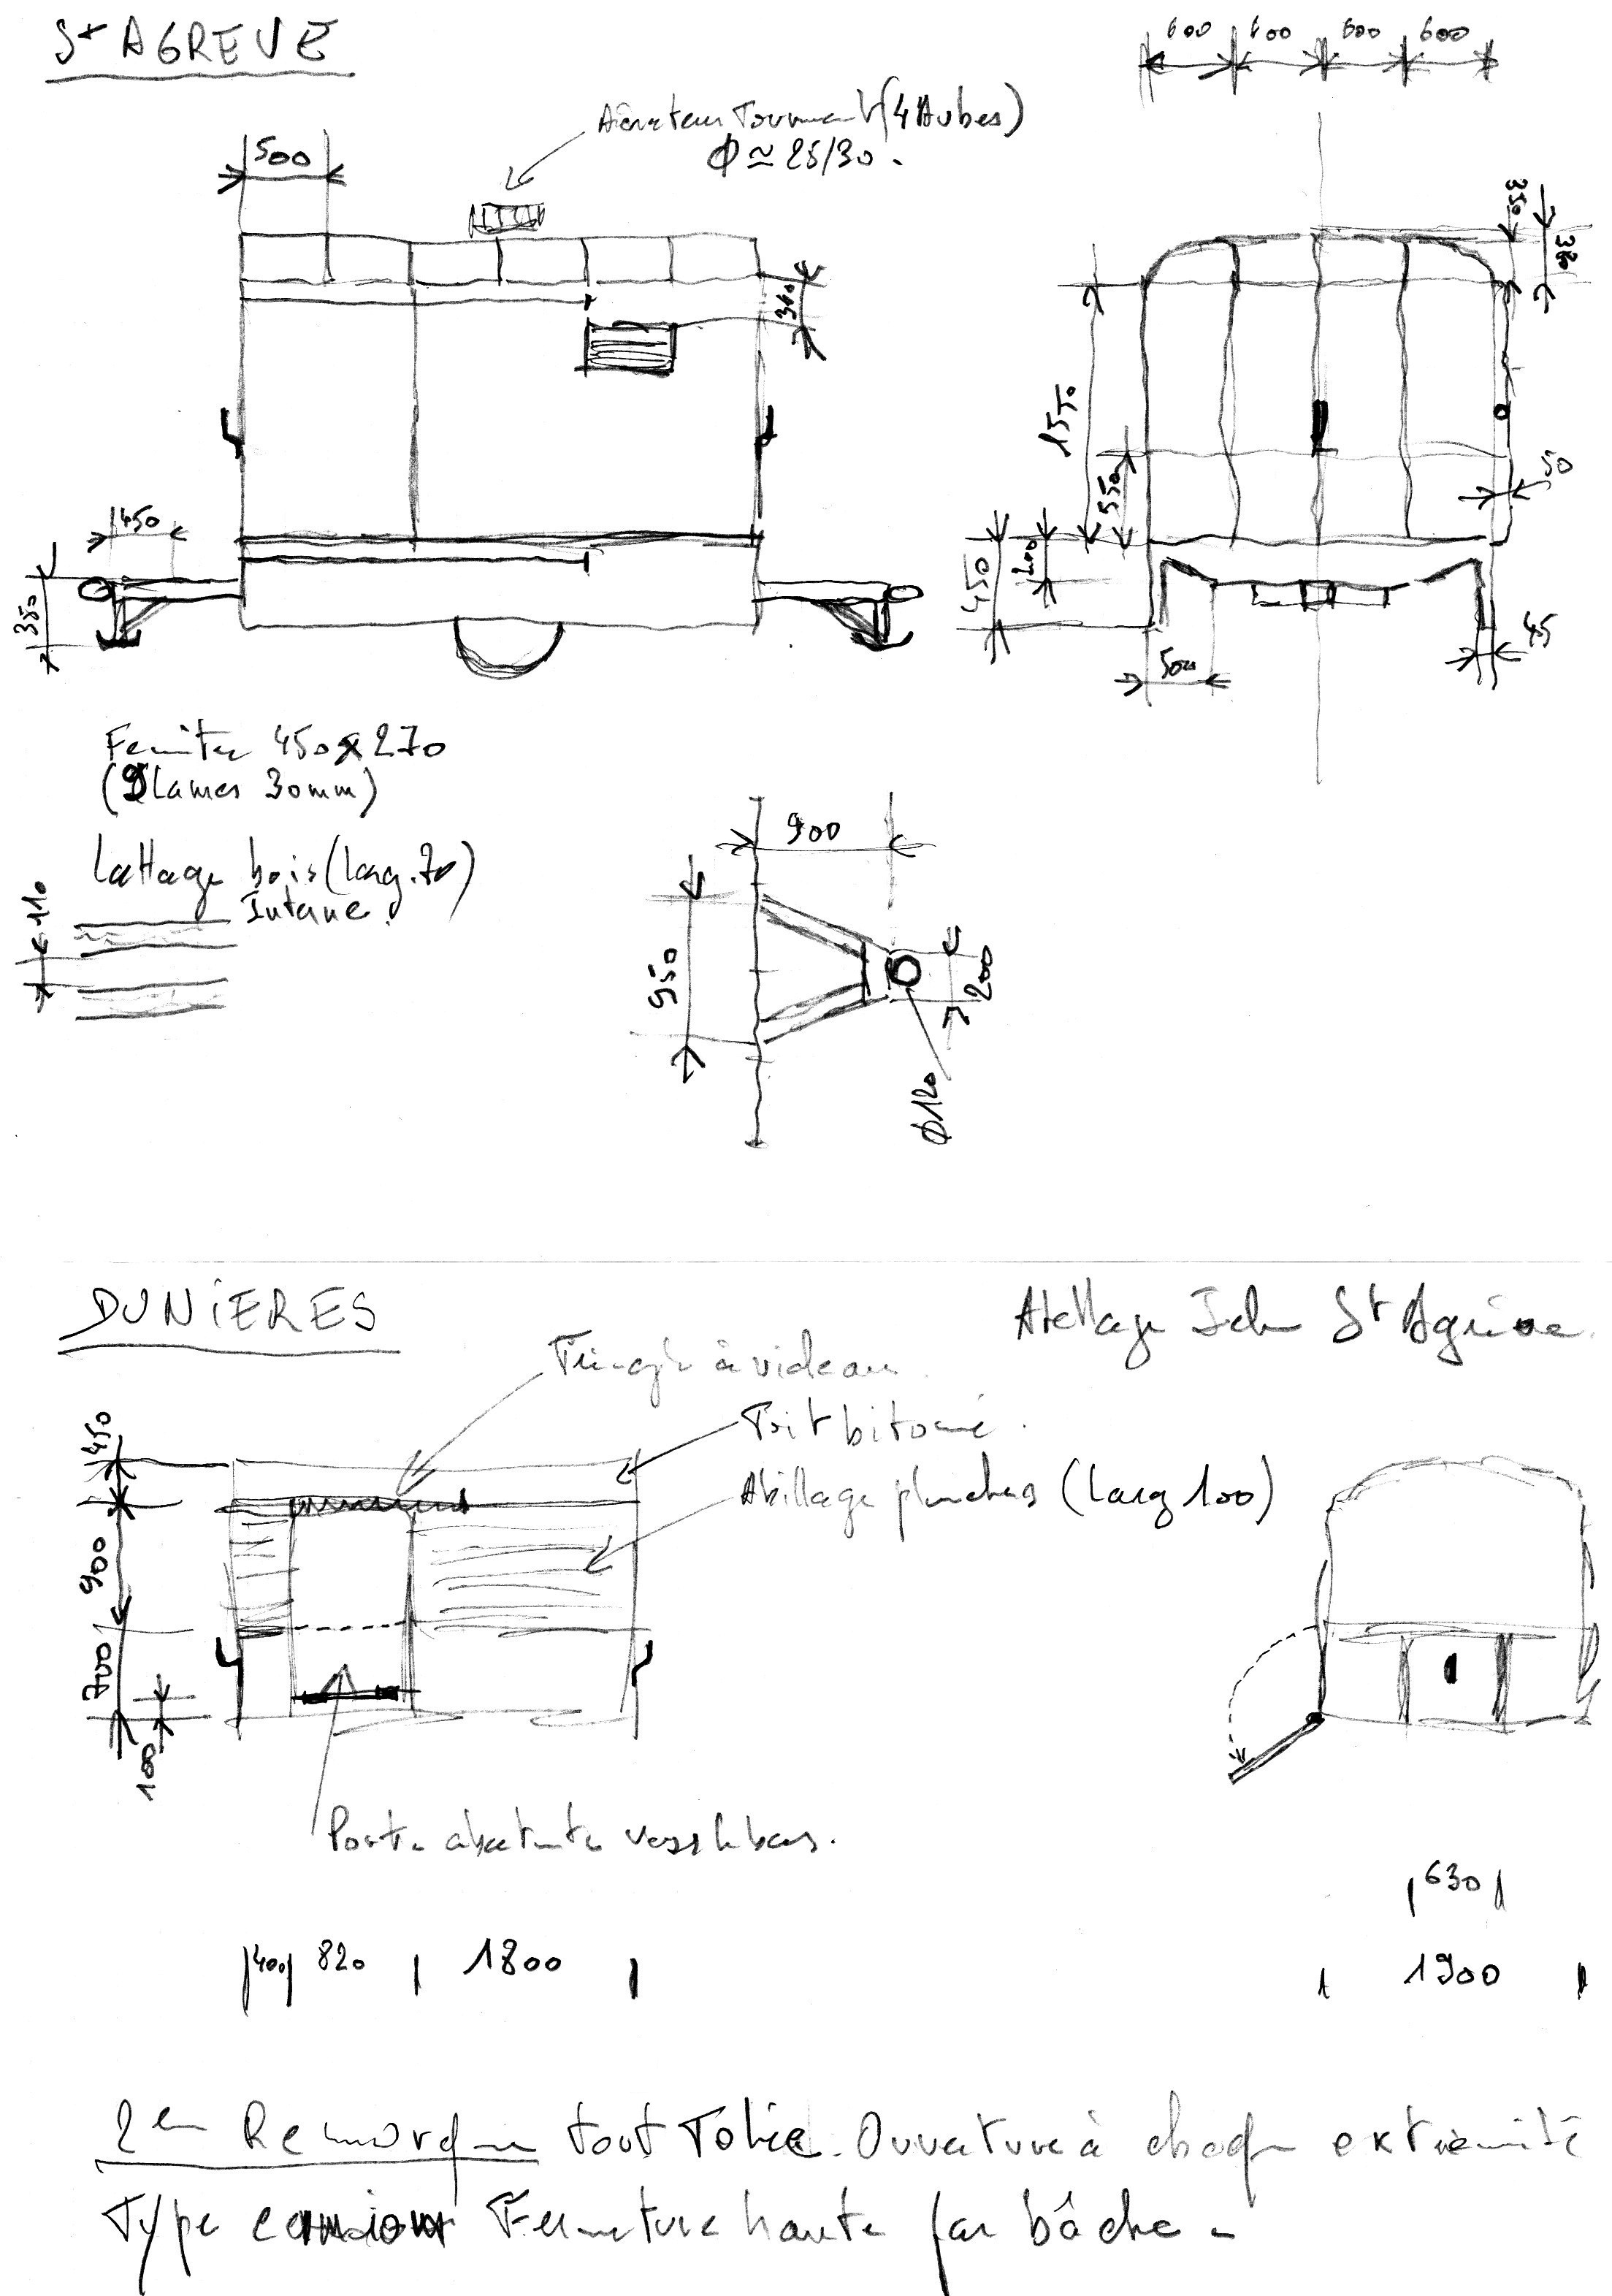 St AGREVE
600 600 600 600
Aérateur Tournant (4 Aubes)
Φ ≃ 25/30.
500
350
380
300
1550
550
50
450
350
450
400
500
45
Fenêtre 450x270
(9 Lames 30mm)
Lattage bois (larg. 70)
Interne
110
900
950
200
Φ120
DUNiERES
Attelage Idem St Agrève.
Tringle à rideau.
Toit bitumé.
Abillage planches (larg 100)
450
900
700
100
Porte abattante vers le bas.
630
400 820 1800
1900
2em Remorque tout Tolée. Ouverture à chaque extrémité
Type camion Fermeture haute par bâche -